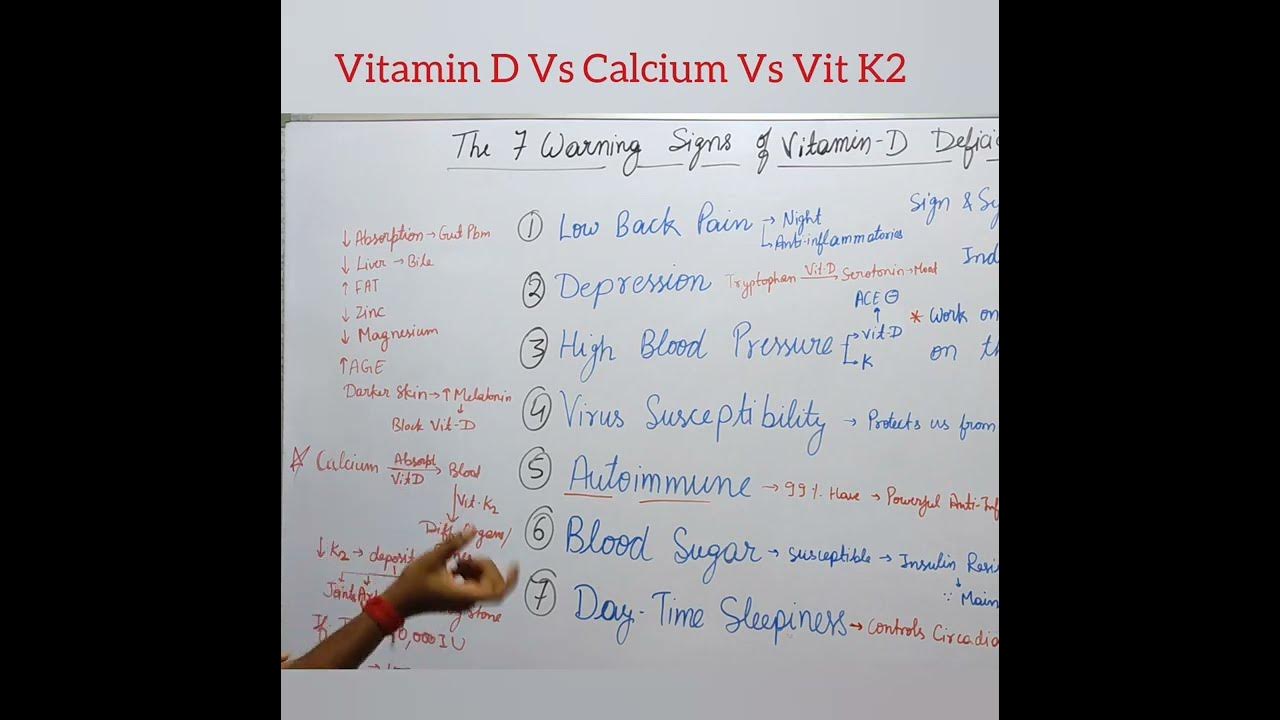 Vitamin D Vs Calcium Vs Vit K2
The 7 Warning Signs of Vitamin-D Defici
Sign & Sy
Ind
* Work on
on th
① Low Back Pain → Night
↳ Anti-inflammatories
② Depression Tryptophan Vit-D → Serotonin → Mood
ACE ⊖
↑
③ High Blood Pressure → Vit-D
→ K
④ Virus Susceptibility → Protects us from
⑤ Autoimmune → 99% Have → Powerful Anti-Inf
⑥ Blood Sugar → Susceptible → Insulin Resi
↓
∵ Main
⑦ Day-Time Sleepiness → Controls Circadia
↓ Absorption → Gut Pbm
↓ Liver → Bile
↑ FAT
↓ Zinc
↓ Magnesium
↑ AGE
Darker Skin → ↑ Melatonin
↓
Block Vit-D
☆ Calcium Absorpt VitD → Blood
↓ Vit-K2
Diff Organ/
↓ K2 → deposit
Joints
Stone
If 10,000 IU